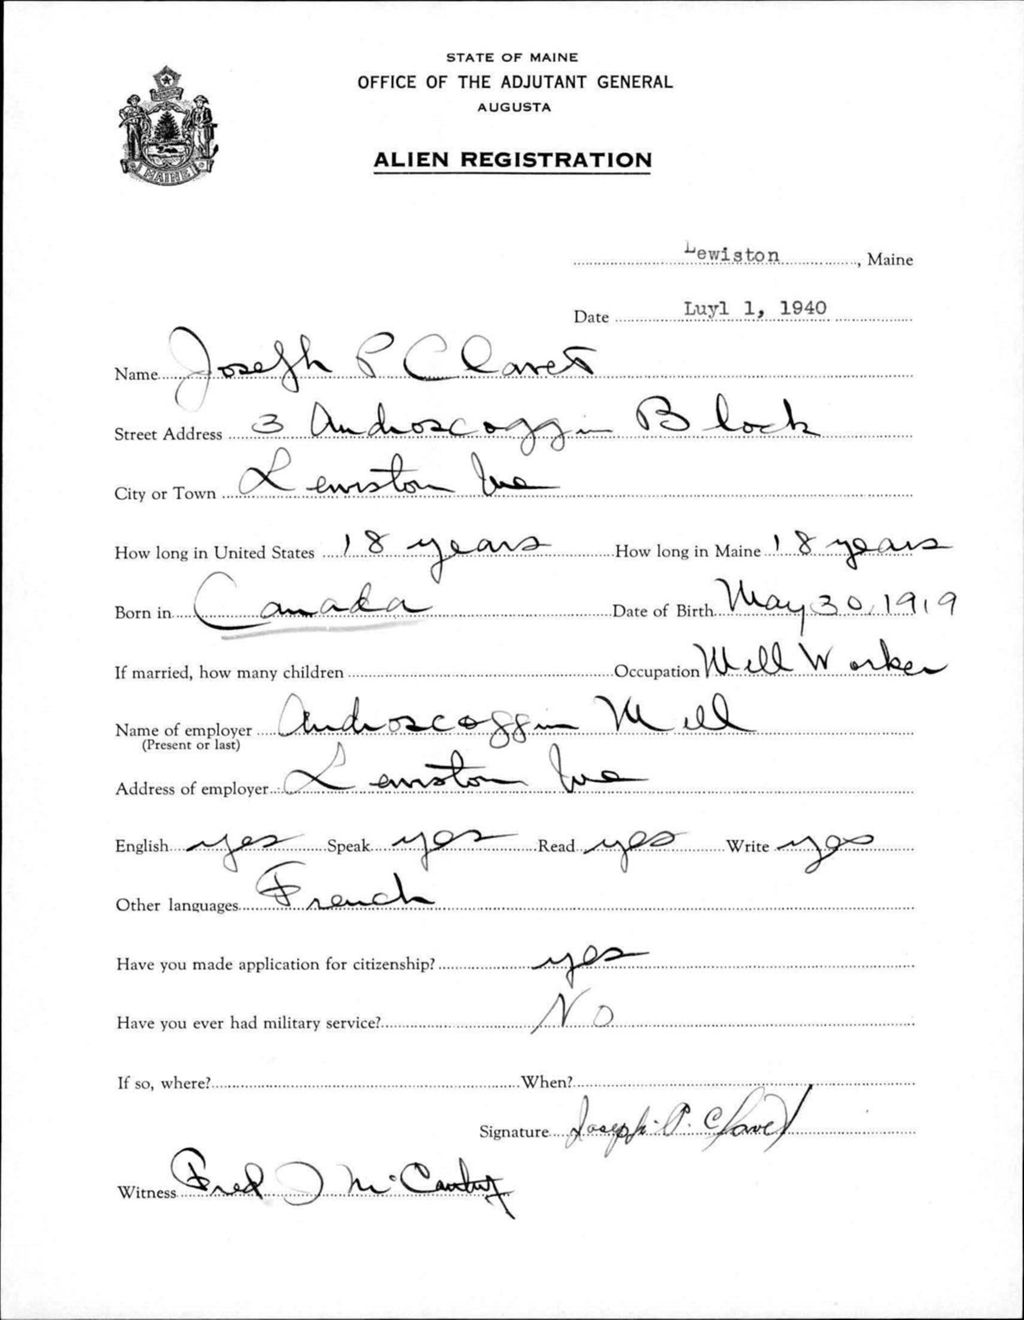 STATE OF MAINE
OFFICE OF THE ADJUTANT GENERAL
AUGUSTA
ALIEN REGISTRATION
MAINE
Lewiston, Maine
Date Luyl 1, 1940
Name Joseph P Clavet
Street Address 3 Androscoggin Block
City or Town Lewiston Me
How long in United States 18 years How long in Maine 18 years
Born in Canada Date of Birth May 30, 1919
If married, how many children Occupation Mill Worker
Name of employer Androscoggin Mill
(Present or last)
Address of employer Lewiston Me
English yes Speak yes Read yes Write yes
Other languages French
Have you made application for citizenship? yes
Have you ever had military service? No
If so, where? When?
Signature Joseph P. Clavet
Witness Fred J McCarthy